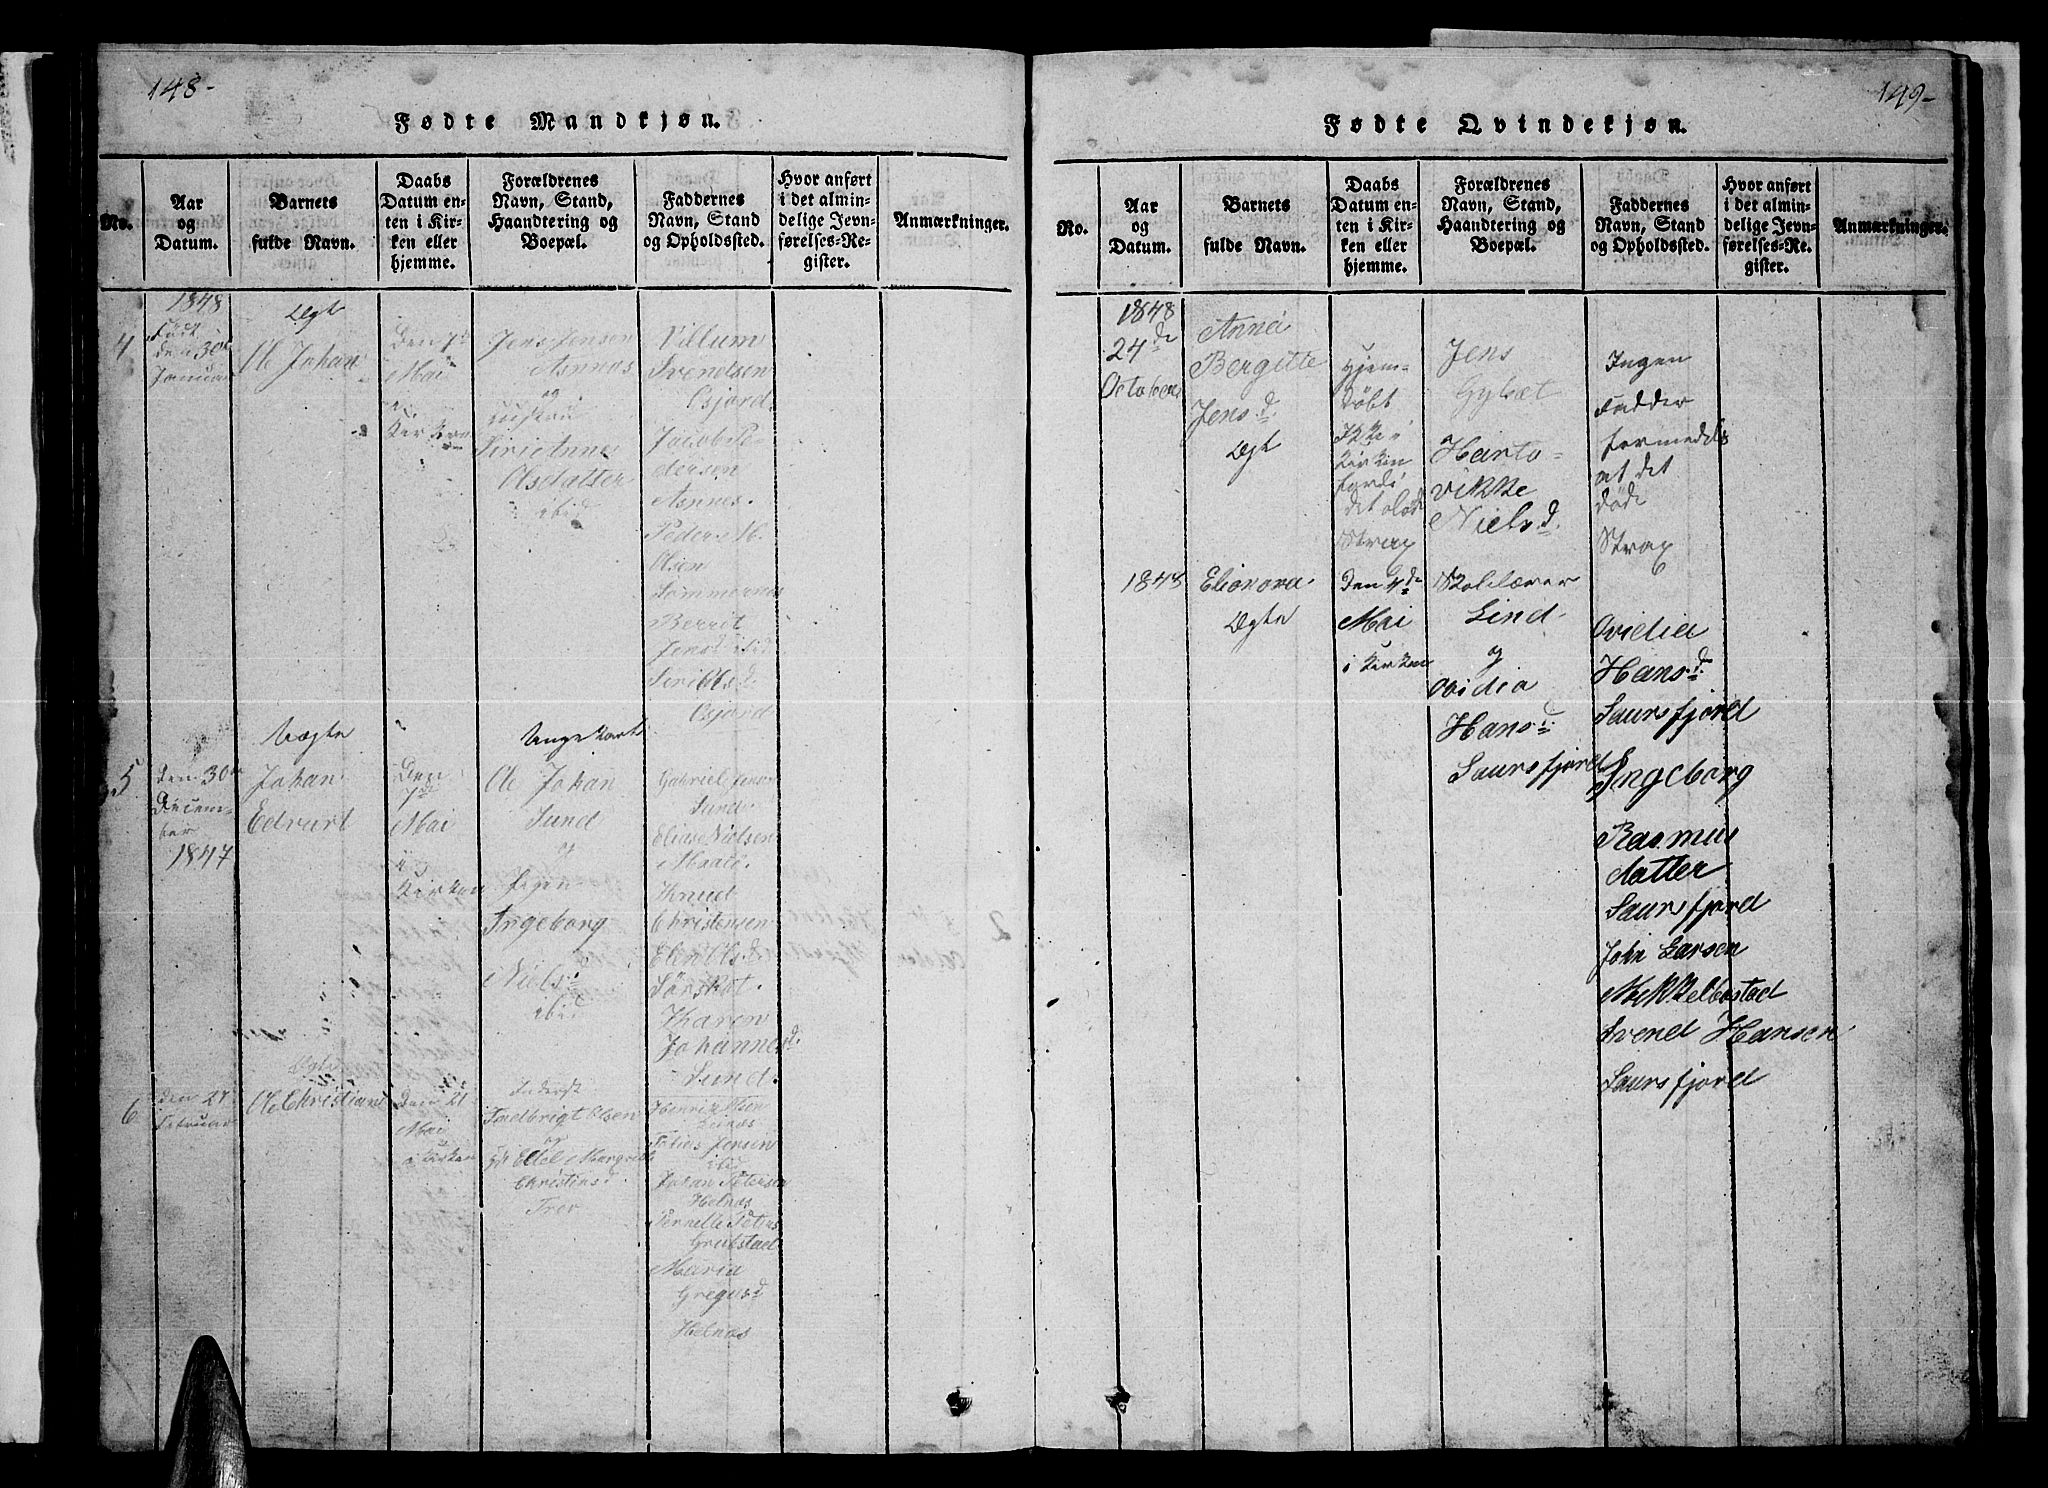 148-
Fødte Mandkjøn.
No.
Aar
og
Datum.
Barnets
fulde Navn.
Daabs
Datum en-
ten i Kir-
ken eller
hjemme.
Forældrenes
Navn, Stand,
Haandtering og
Boepæl.
Faddernes
Navn, Stand
og Opholdssted.
Hvor anført
i det almin-
delige Jevn-
førelses-Re-
gister.
Anmærkninger.
4
1848
Født
den 30te
Januar
Ægt
Ole Johan
Den 7de
Mai
i
Kirken
Jens Jensen
Asnnæs
og
Siri Anne
Olsdatter
ibid
Villum
Svendsen
Osjord
Jacob Pe-
dersen
Asnnes.
Peder M.
Olsen
Sommernes
Berrit
Jensd ibid
Siri Olsd.
Osjord
5
Den 30te
Decem-
ber
1847
Uægte
Johan
Edvart
Den
7de
Mai
i
Kirken
Ungekarl
Ole Johan
Sund
og
Pigen
Ingeborg
Nielsd
ibid
Gabriel Jensen
Sund
Elius Nielsen
Knud
Christensen
Elen Ols.d
Karen
Johannesd.
Sund.
6
den 27
Februar
Ægte
Ole Christian
Den 21
Mai
i Kirken
Fædbrigt Olsen
og
Ellel Margreth
Christensd.
Trev
Henrik Olsen
Tobias Jensen
ibid
Johan Petersen
Helnæs
Pernelle Petersd
Grubstad
Maria
Gregusd
Helnæs
149-
Fødte Qvindekjøn.
No.
Aar
og
Datum.
Barnets
fulde Navn.
Daabs
Datum en-
ten i Kir-
ken eller
hjemme.
Forældrenes
Navn, Stand,
Haandtering og
Boepæl.
Faddernes
Navn, Stand
og Opholdssted.
Hvor anført
i det almin-
delige Jevn-
førelses-Re-
gister.
Anmærkninger.
1848
24de
October
Anne
Bergitte
Jens.d.
Ægt
Hjem-
døbt
Ikke i
Kirken
fordi
det døde
Strax
Jens
Gylset
Harto-
vikke
Niels.d.
Ingen
Fadder
formedelst
at det
døde
Strax
1848
Elionora
Ægte
Den 4de
Mai
i Kirken
Skolelærer
Lind
og
Ovidia
Hans.d
Saursfjord
Ovidia
Hans.d
Saursfjord
Ingeborg
Rasmus
datter
Saursfjord
John Larsen
Mikkelbostad
Svend Hansen
Saursfjord